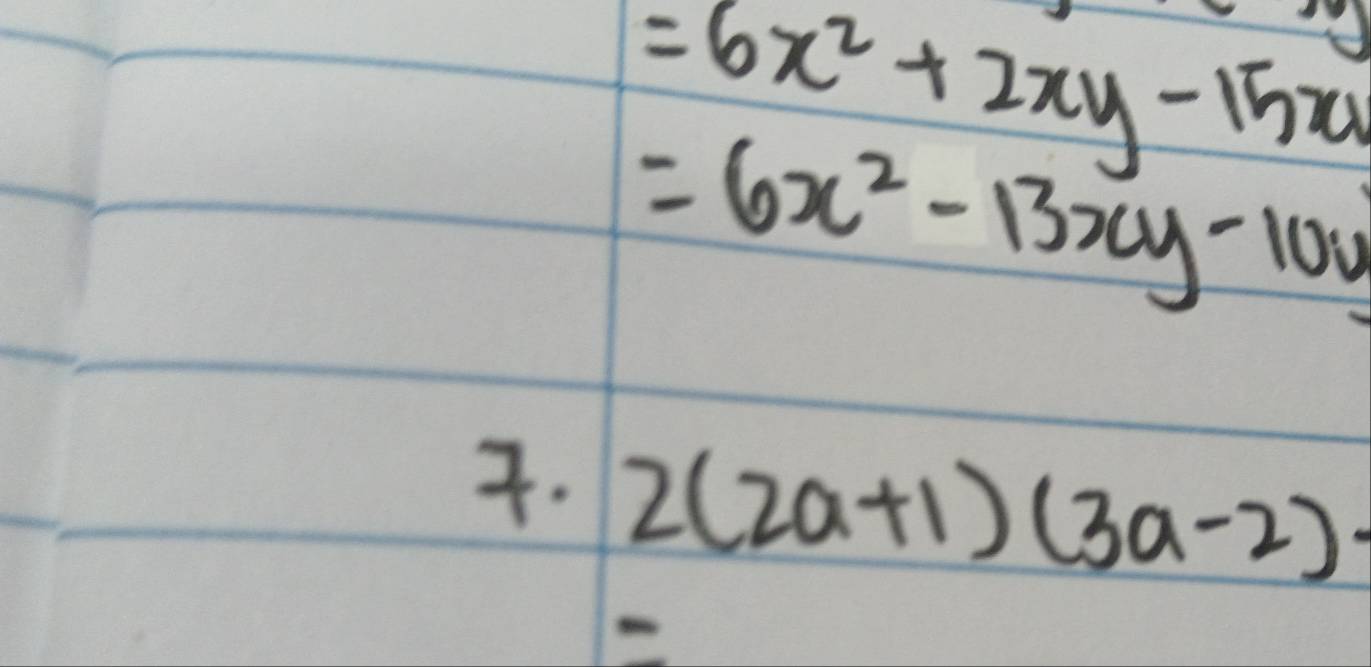 = 6x² + 2xy - 15xy
= 6x² - 13xy - 10y
7. 2(2a+1)(3a-2)-
=